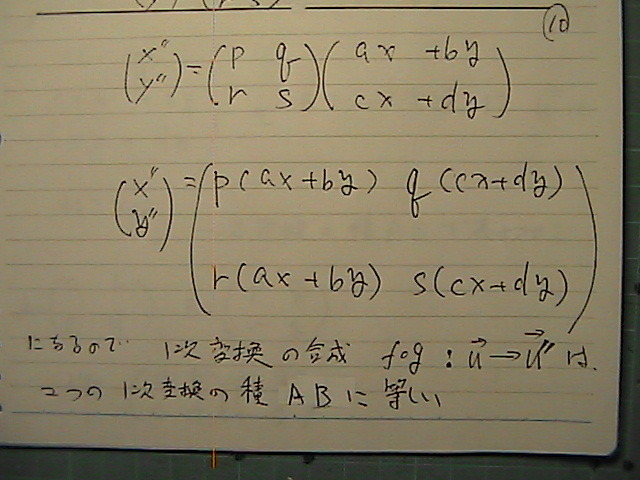 ⑩
(x'' y'') = (p q r s)(ax + by cx + dy)
(x'' y'') = (p(ax+by) q(cx+dy)
r(ax+by) s(cx+dy))
になるので 1次変換の合成 fog : u→u'' は、
2つの1次変換の種 AB に等しい